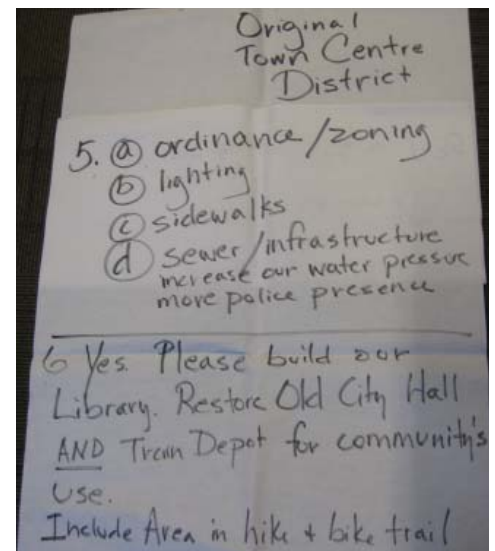 Original
Town Centre
District
5. ⓐ ordinance/zoning
ⓑ lighting
ⓒ sidewalks
ⓓ sewer/infrastructure
increase our water pressure
more police presence
6 Yes. Please build our
Library. Restore Old City Hall
AND Train Depot for community's
use.
Include Area in hike & bike trail